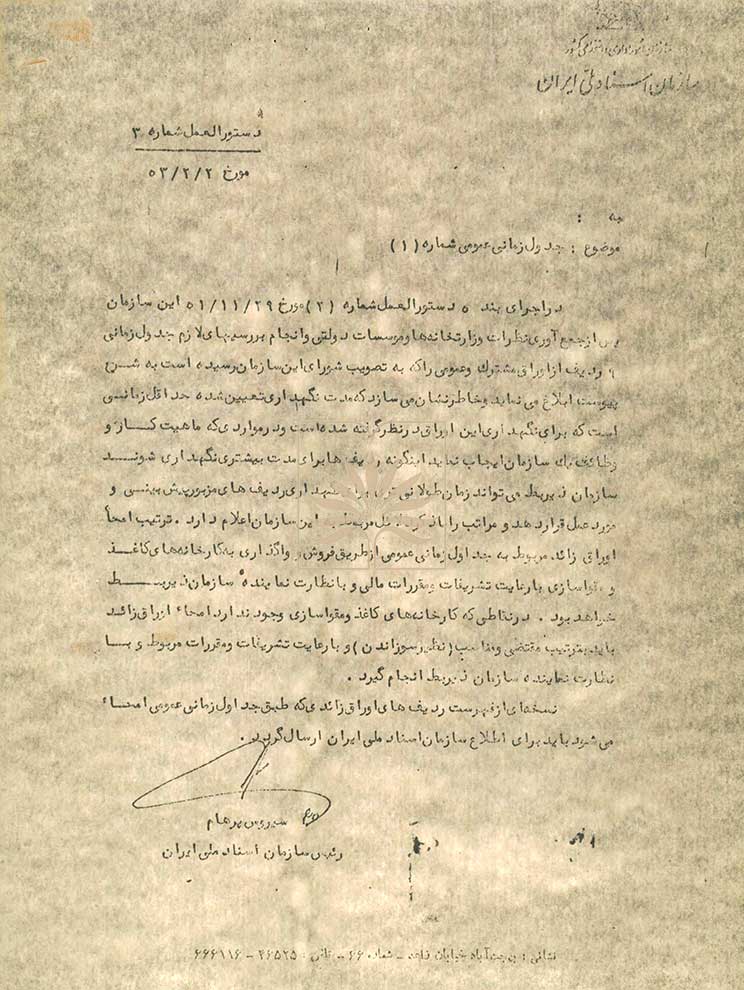 سازمان امور اداری و استخدامی کشور
سازمان اسناد ملی ایران
دستورالعمل شماره ۳
مورخ ۵۳/۲/۲
به :
موضوع : جدول زمانی عمومی شماره (۱)
در اجرای بند ۵ دستورالعمل شماره (۲) مورخ ۵۱/۱۱/۲۹ این سازمان
پس از جمع آوری نظرات وزارتخانه‌ها و موسسات دولتی و انجام بررسیهای لازم جدول زمانی
۹ ردیف از اوراق مشترک و عمومی را که به تصویب شورای این سازمان رسیده است به شرح
پیوست ابلاغ می نماید و خاطرنشان می سازد که مدت نگهداری تعیین شده حداقل زمانی
است که برای نگهداری این اوراق در نظر گرفته شده است و در مواردی که ماهیت کار و
وظائف یک سازمان ایجاب نماید اینگونه ردیف ها برای مدت بیشتری نگهداری شوند
سازمان ذیربط می تواند زمان طولانی تری برای نگهداری ردیف های مزبور پیش بینی و
مورد عمل قرار دهد و مراتب را با ذکر مربوط به این سازمان اعلام دارد . ترتیب امحاء
اوراق زائد مربوط به جداول زمانی عمومی از طریق فروش و واگذاری به کارخانه‌های کاغذ
و مقواسازی با رعایت تشریفات و مقررات مالی و با نظارت نماینده سازمان ذیربط
خواهد بود . در نقاطی که کارخانه‌های کاغذ و مقواسازی وجود ندارد امحاء اوراق زائد
باید بترتیب مقتضی و مناسب (نظیر سوزاندن) و با رعایت تشریفات و مقررات مربوط و با
نظارت نماینده سازمان ذیربط انجام گیرد .
نسخه‌ای از فهرست ردیف های اوراق زائدی که طبق جداول زمانی عمومی امحاء
می شود باید برای اطلاع سازمان اسناد ملی ایران ارسال گردد .
سیروس پرهام
رئیس سازمان اسناد ملی ایران
نشانی : خیابان - شماره ۶۶ - تلفن : ۴۶۵۲۵ - ۶۶۶۱۱۶